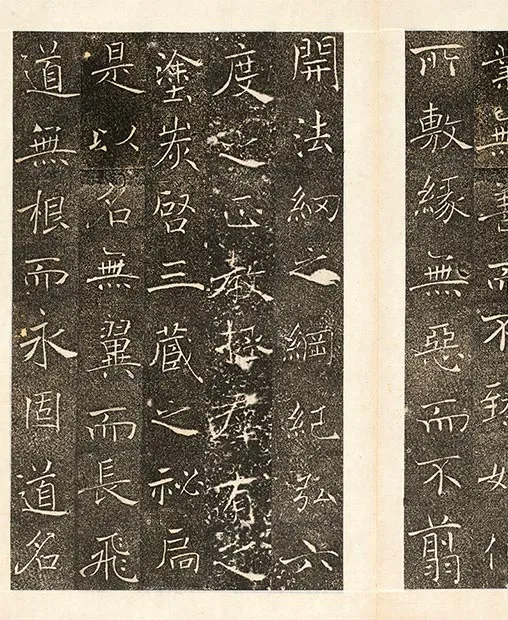 業無善而不臻妙化
所敷緣無惡而不翦
開法網之綱紀弘六
度之正教拯群有之
塗炭啓三藏之祕扃
是以名無翼而長飛
道無根而永固道名